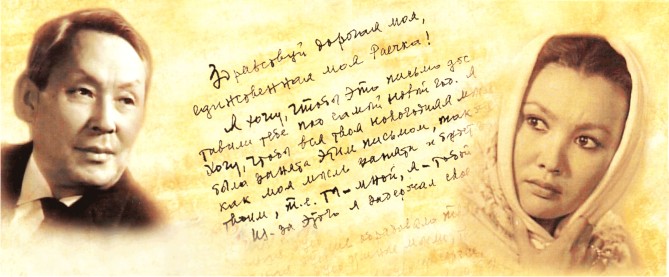 Здравствуй дорогая моя,
единственная моя Раечка!
Я хочу, чтобы это письмо дос
тавили тебе под самый новый год. Я
хочу, чтобы вся твоя новогодняя
была занята этим письмом, также
как моя мысль занята и будет
твоим, т.е. ты - мной, я - тобой
Из-за этого я задержал свое